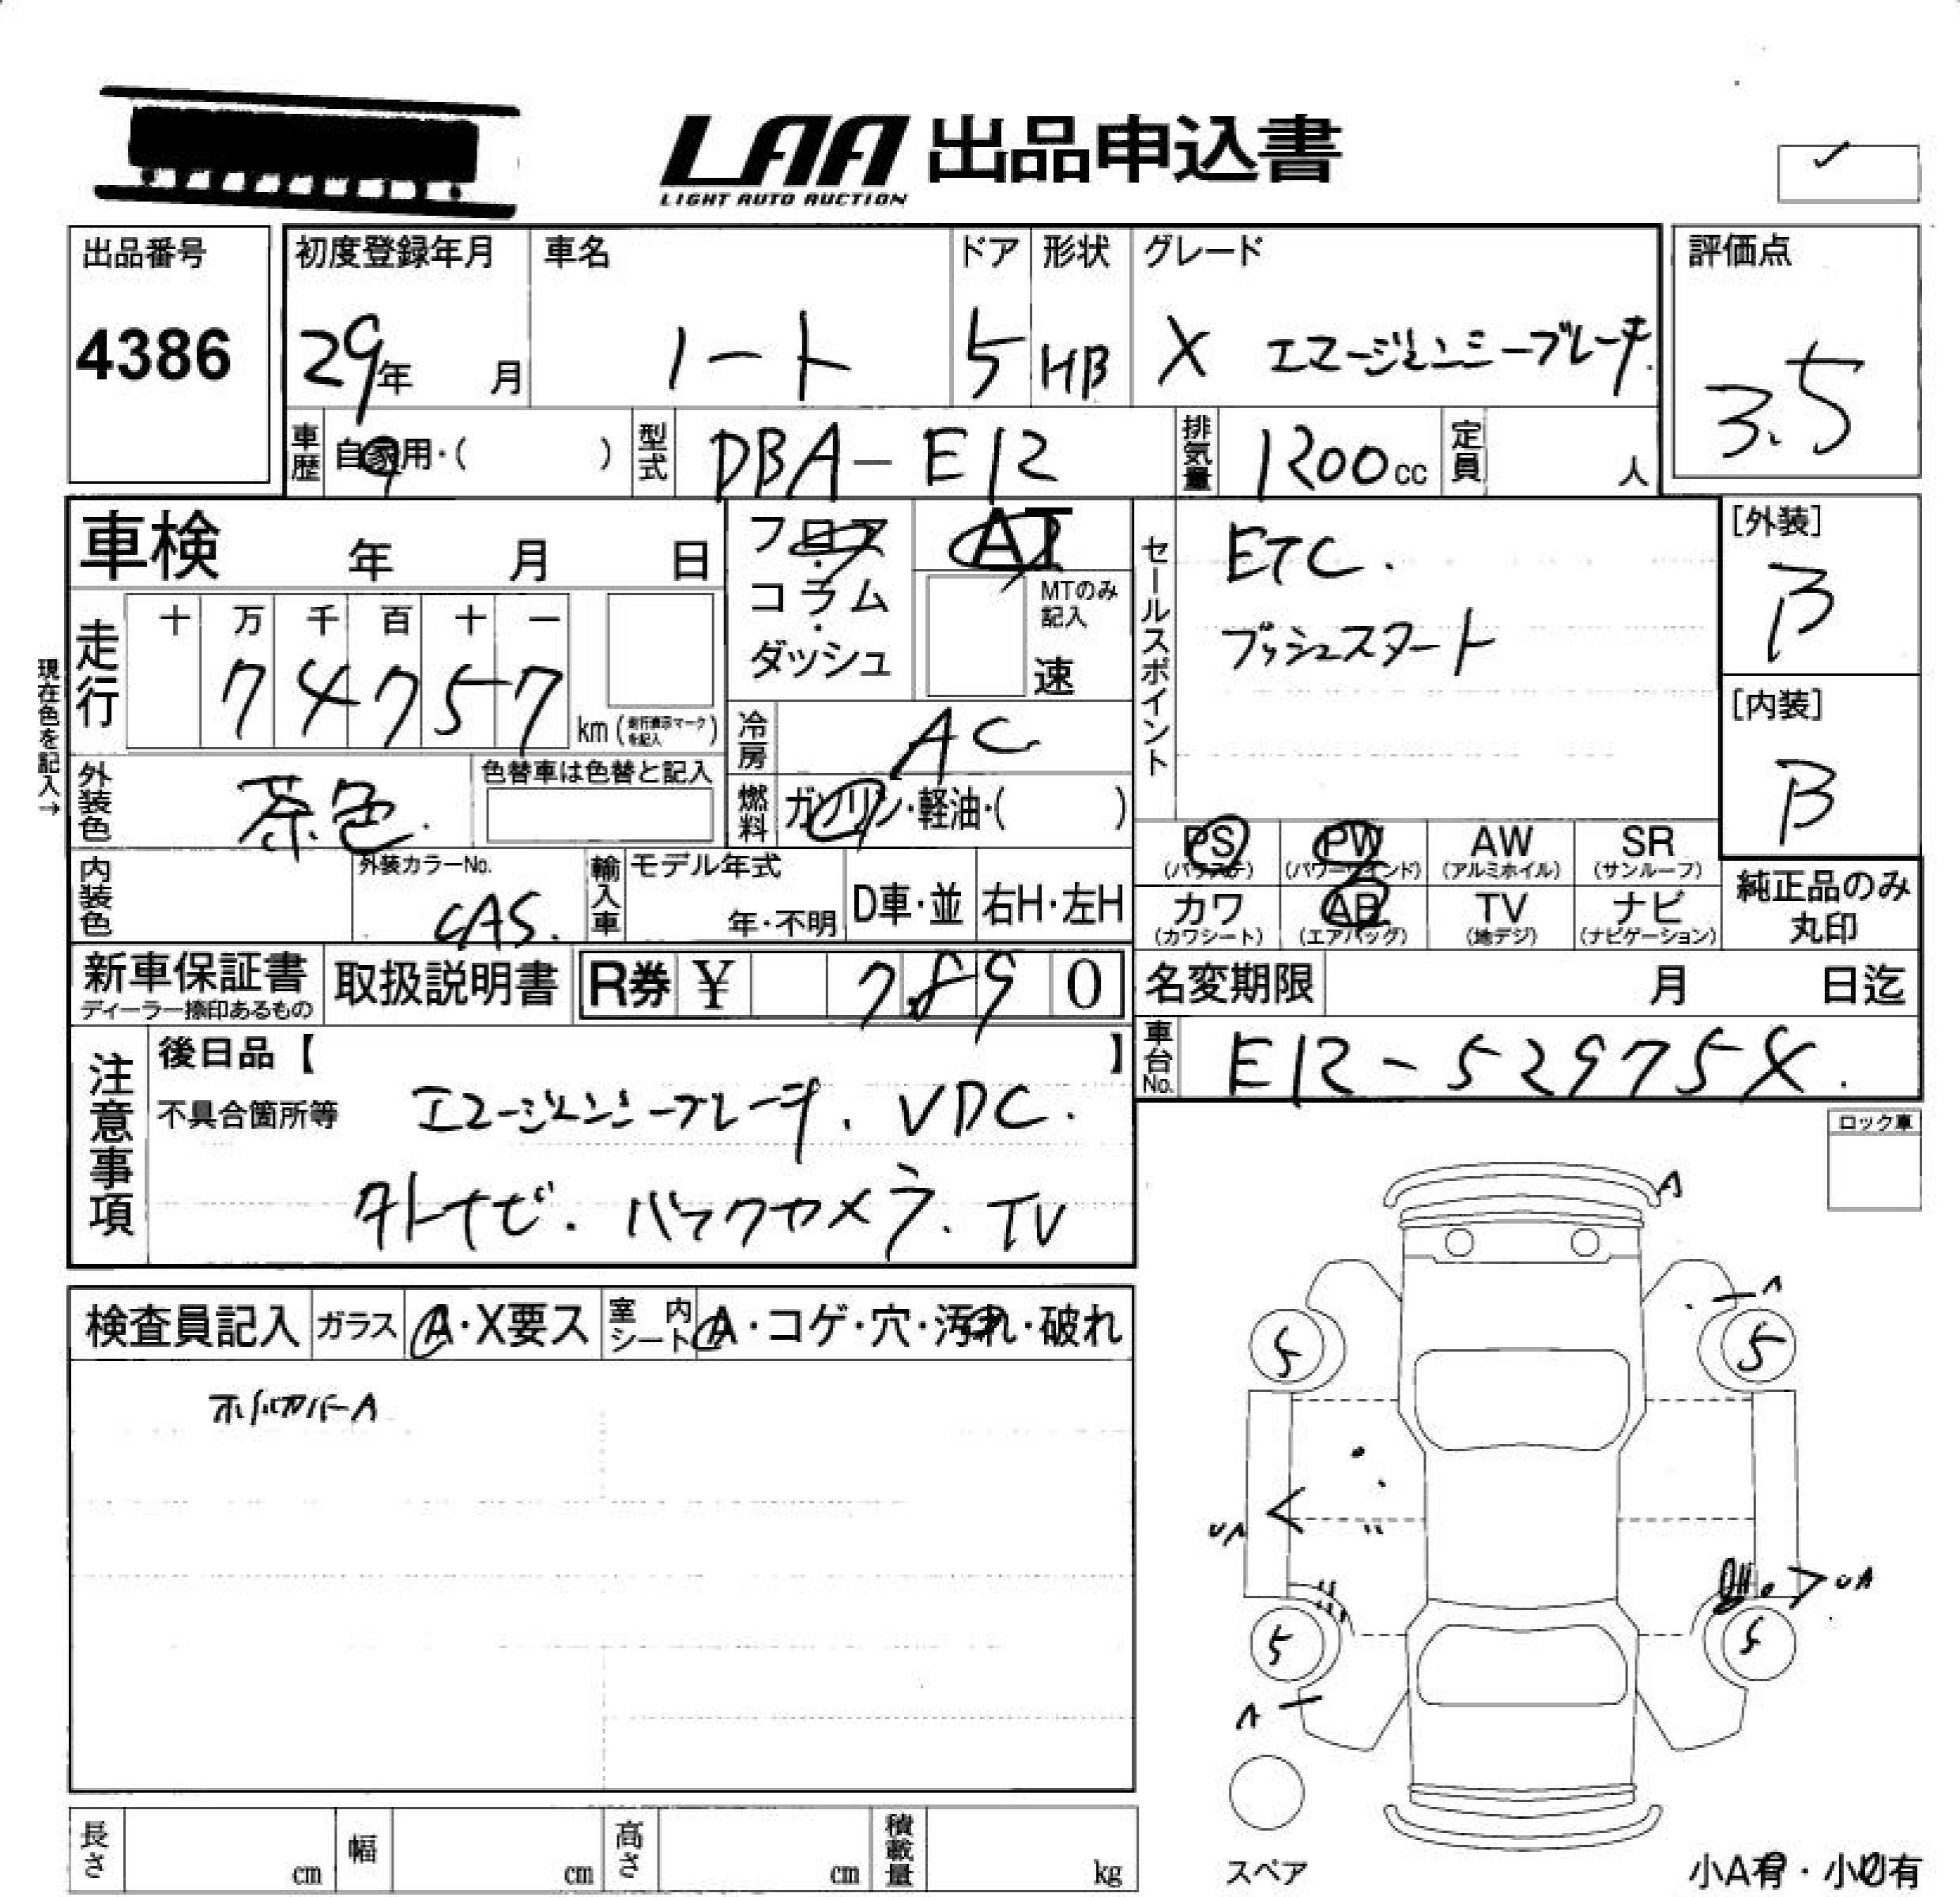 LAA 出品申込書
LIGHT AUTO AUCTION
出品番号
4386
初度登録年月 車名 ドア 形状 グレード
29年 月 ノート 5 HB X エマージェンシーブレーキ
評価点
3.5
車歴 自家用・( ) 型式 DBA-E12 排気量 1200cc 定員 人
車検 年 月 日
フロア・コラム・ダッシュ
AT
MTのみ記入
速
セールスポイント
ETC.
プッシュスタート
[外装]
B
[内装]
B
現在色を記入→
走行 十 万 千 百 十 一
7 4 7 5 7 km (走行表示マークを記入)
冷房 AC
外装色 茶色. 色替車は色替と記入
燃料 ガソリン・軽油・( )
PS (パワステ) PW (パワーウインド) AW (アルミホイル) SR (サンルーフ)
カワ (カワシート) AB (エアバッグ) TV (地デジ) ナビ (ナビゲーション)
純正品のみ丸印
内装色 外装カラーNo. CAS. 輸入車 モデル年式 年・不明 D車・並 右H・左H
新車保証書 ディーラー捺印あるもの 取扱説明書 R券 ¥ 7890
名変期限 月 日迄
車台No. E12-529754.
注意事項
後日品【 】
不具合箇所等 エマージェンシーブレーキ. VDC.
外ナビ. バックカメラ. TV
ロック車
検査員記入 ガラス A・X要ス 室内シート A・コゲ・穴・汚れ・破れ
ホイルカバーA
A
A
5 5
UA
UA
5 5
A
スペア
小A有・小U有
長さ cm 幅 cm 高さ cm 積載量 kg